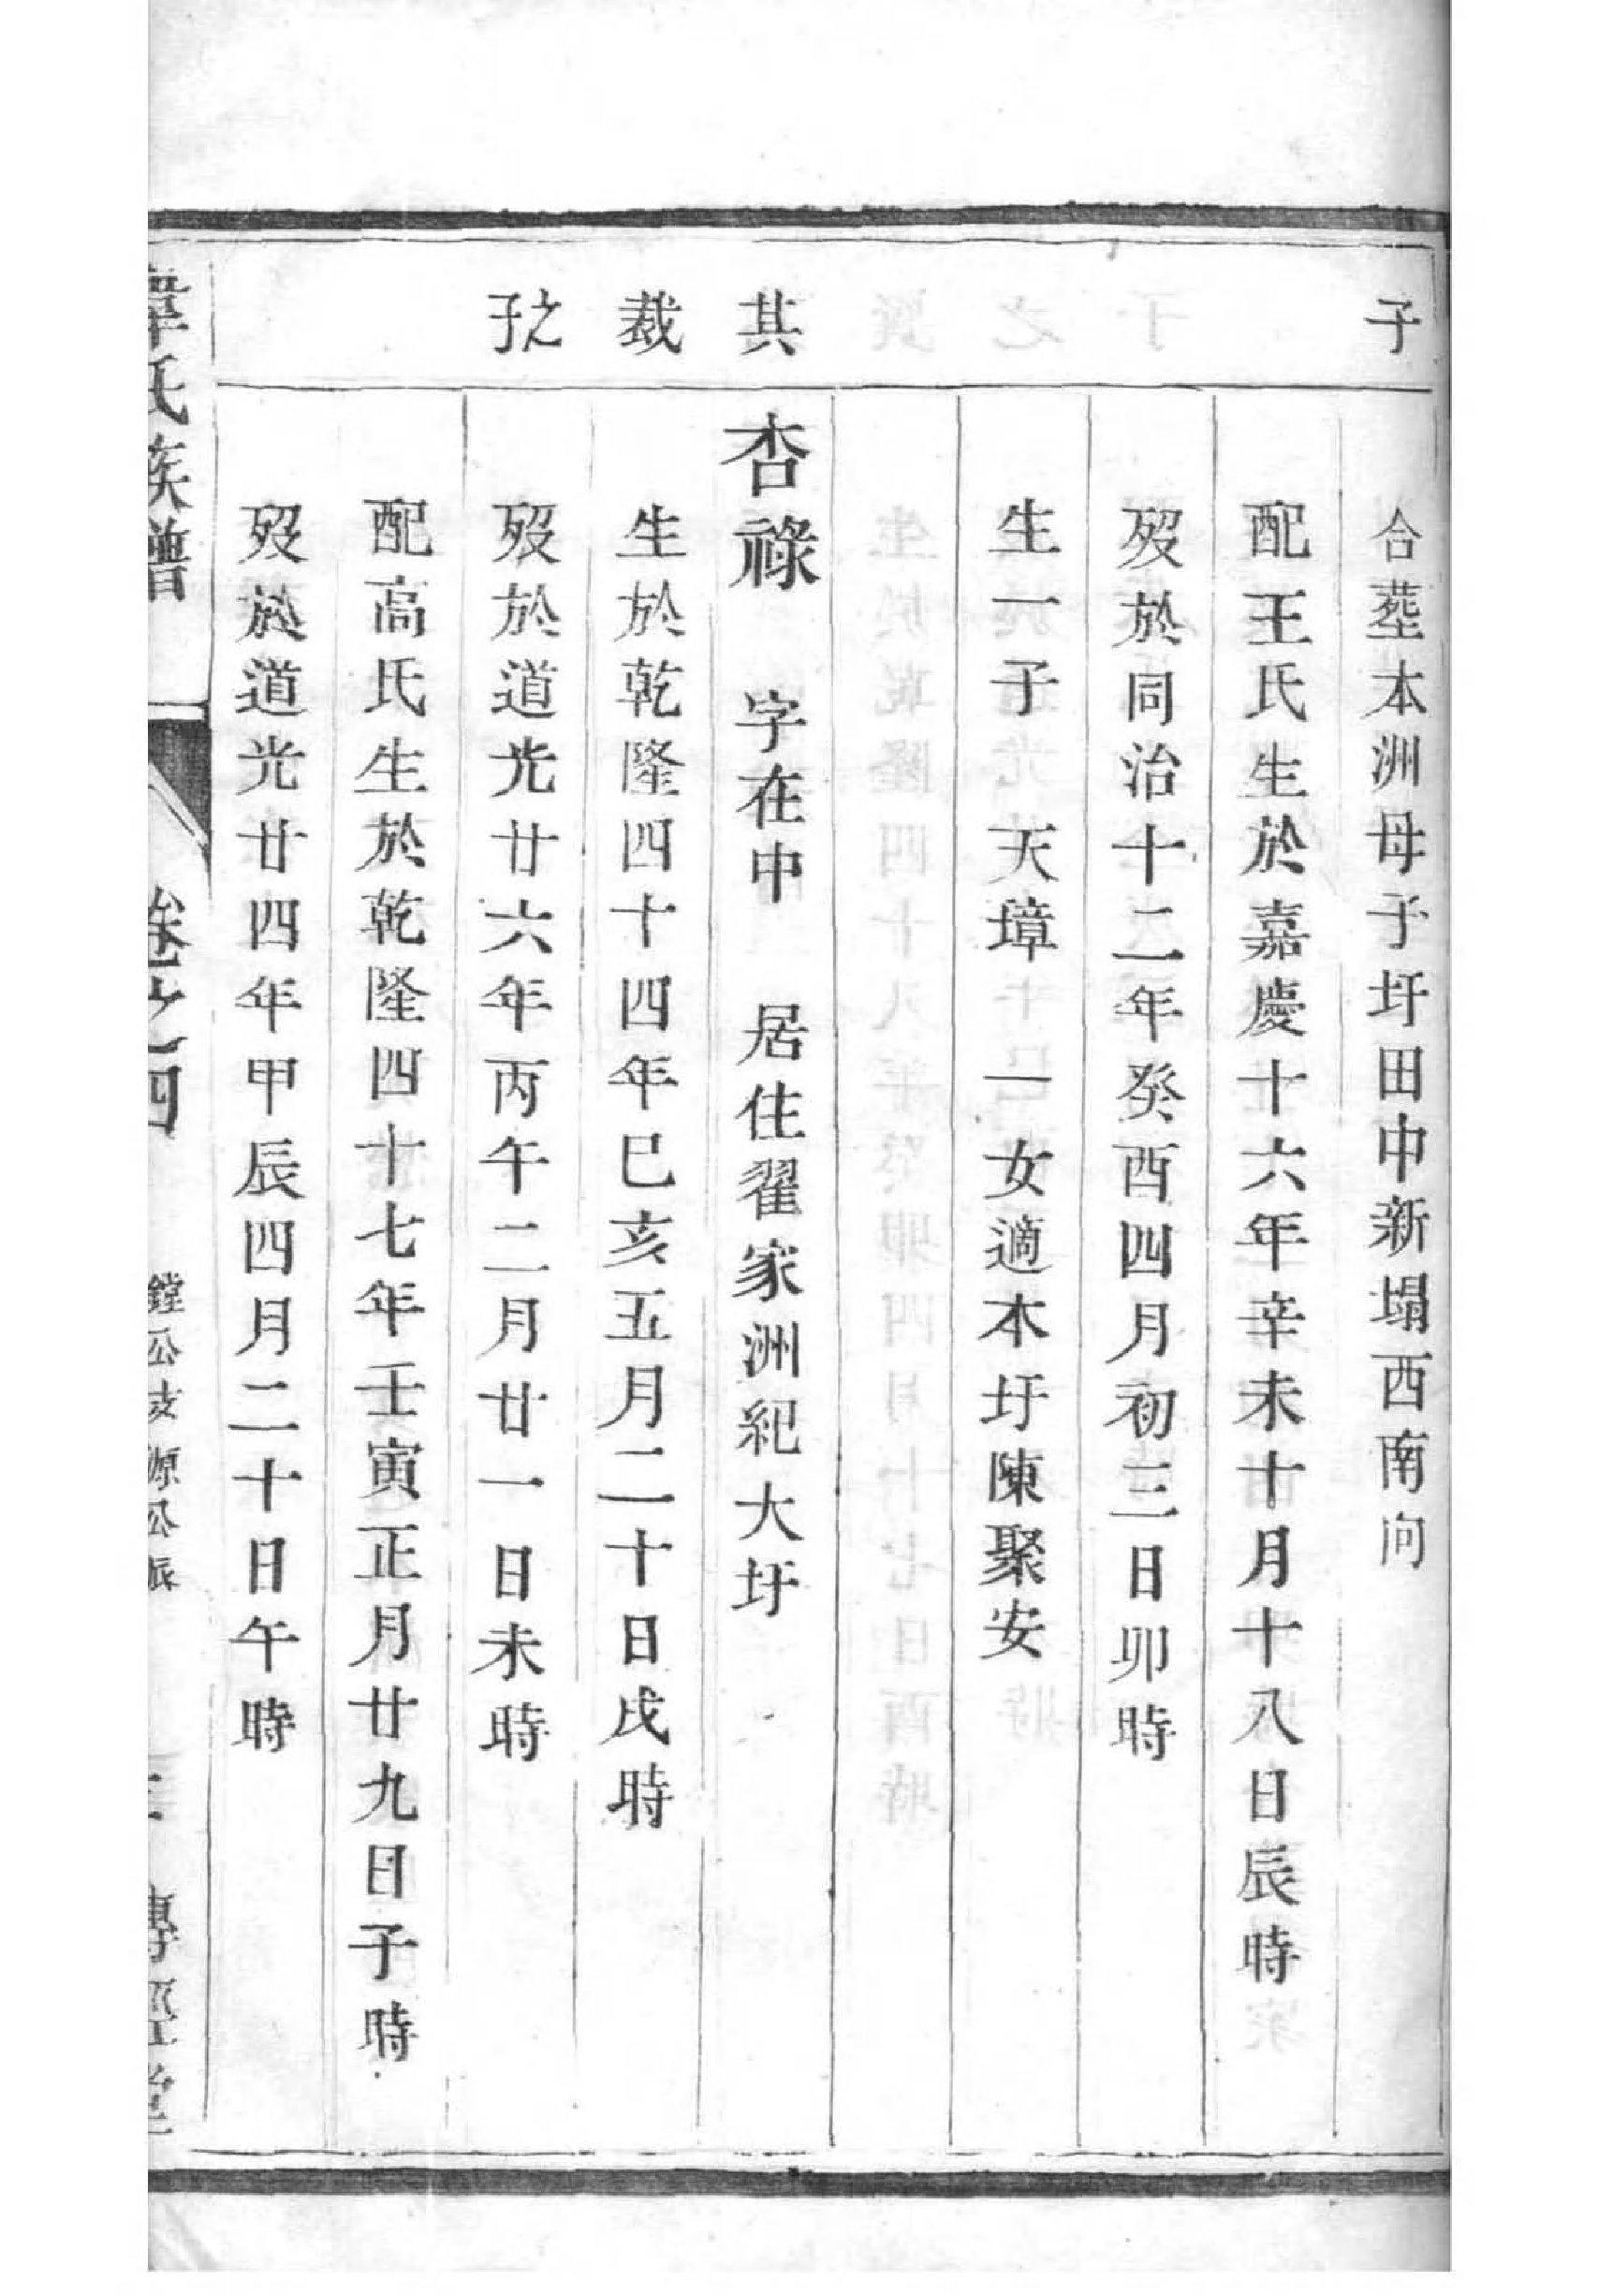 子
合塟本洲母子圩田中新塌西南向
配王氏生於嘉慶十六年辛未十月十八日辰時
歿於同治十二年癸酉四月初三日卯時
生一子　天璋　一女適本圩陳聚安
其裁之子
杏祿　字在中　居住翟家洲紀大圩
生於乾隆四十四年巳亥五月二十日戌時
歿於道光廿六年丙午二月廿一日未時
配高氏生於乾隆四十七年壬寅正月廿九日子時
歿於道光廿四年甲辰四月二十日午時
韋氏族譜
卷之四
鏜公支源公派
傳經堂